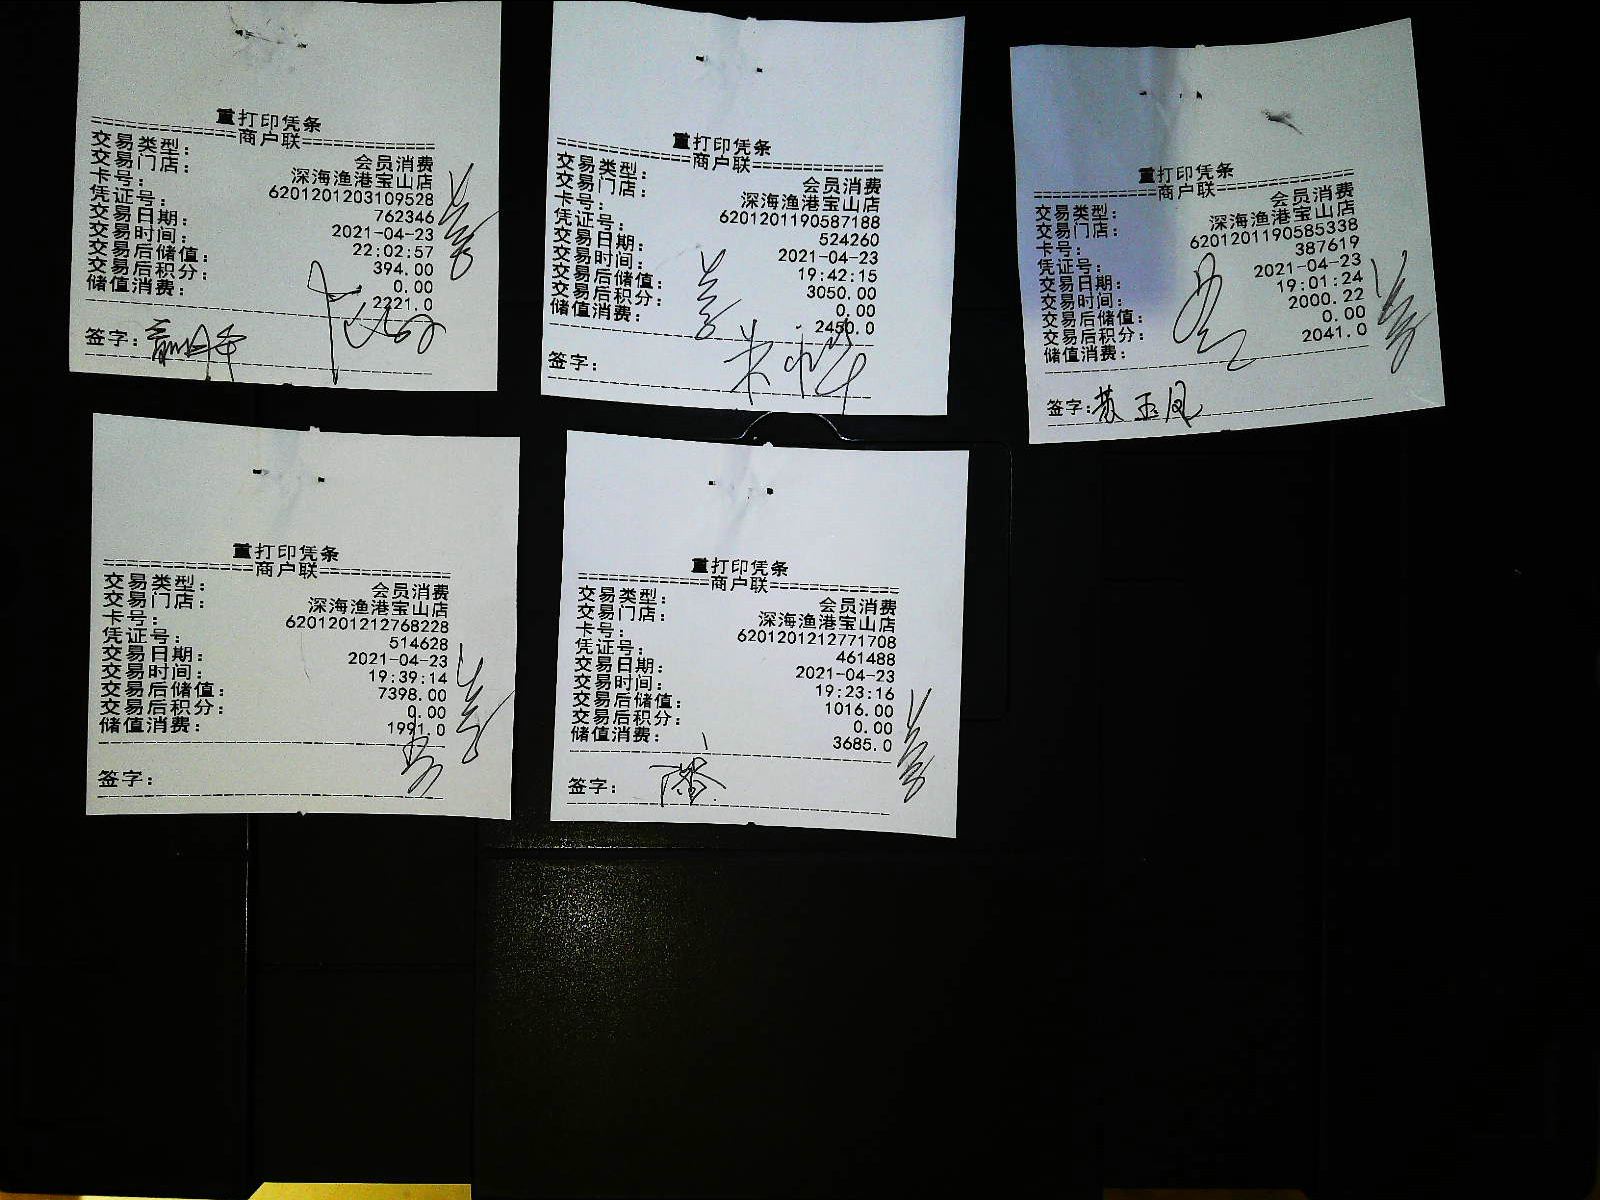 重打印凭条
==========商户联==========
交易类型： 会员消费
交易门店： 深海渔港宝山店
卡号： 6201201203109528
凭证号： 762346
交易日期： 2021-04-23
交易时间： 22:02:57
交易后储值： 394.00
交易后积分： 0.00
储值消费： 2221.0
签字：
重打印凭条
==========商户联==========
交易类型： 会员消费
交易门店： 深海渔港宝山店
卡号： 6201201190587188
凭证号： 524260
交易日期： 2021-04-23
交易时间： 19:42:15
交易后储值： 3050.00
交易后积分： 0.00
储值消费： 2450.0
签字：
重打印凭条
==========商户联==========
交易类型： 会员消费
交易门店： 深海渔港宝山店
卡号： 6201201190585338
凭证号： 387619
交易日期： 2021-04-23
交易时间： 19:01:24
交易后储值： 2000.22
交易后积分： 0.00
储值消费： 2041.0
签字：
重打印凭条
==========商户联==========
交易类型： 会员消费
交易门店： 深海渔港宝山店
卡号： 6201201212768228
凭证号： 514628
交易日期： 2021-04-23
交易时间： 19:39:14
交易后储值： 7398.00
交易后积分： 0.00
储值消费： 1991.0
签字：
重打印凭条
==========商户联==========
交易类型： 会员消费
交易门店： 深海渔港宝山店
卡号： 6201201212771708
凭证号： 461488
交易日期： 2021-04-23
交易时间： 19:23:16
交易后储值： 1016.00
交易后积分： 0.00
储值消费： 3685.0
签字：